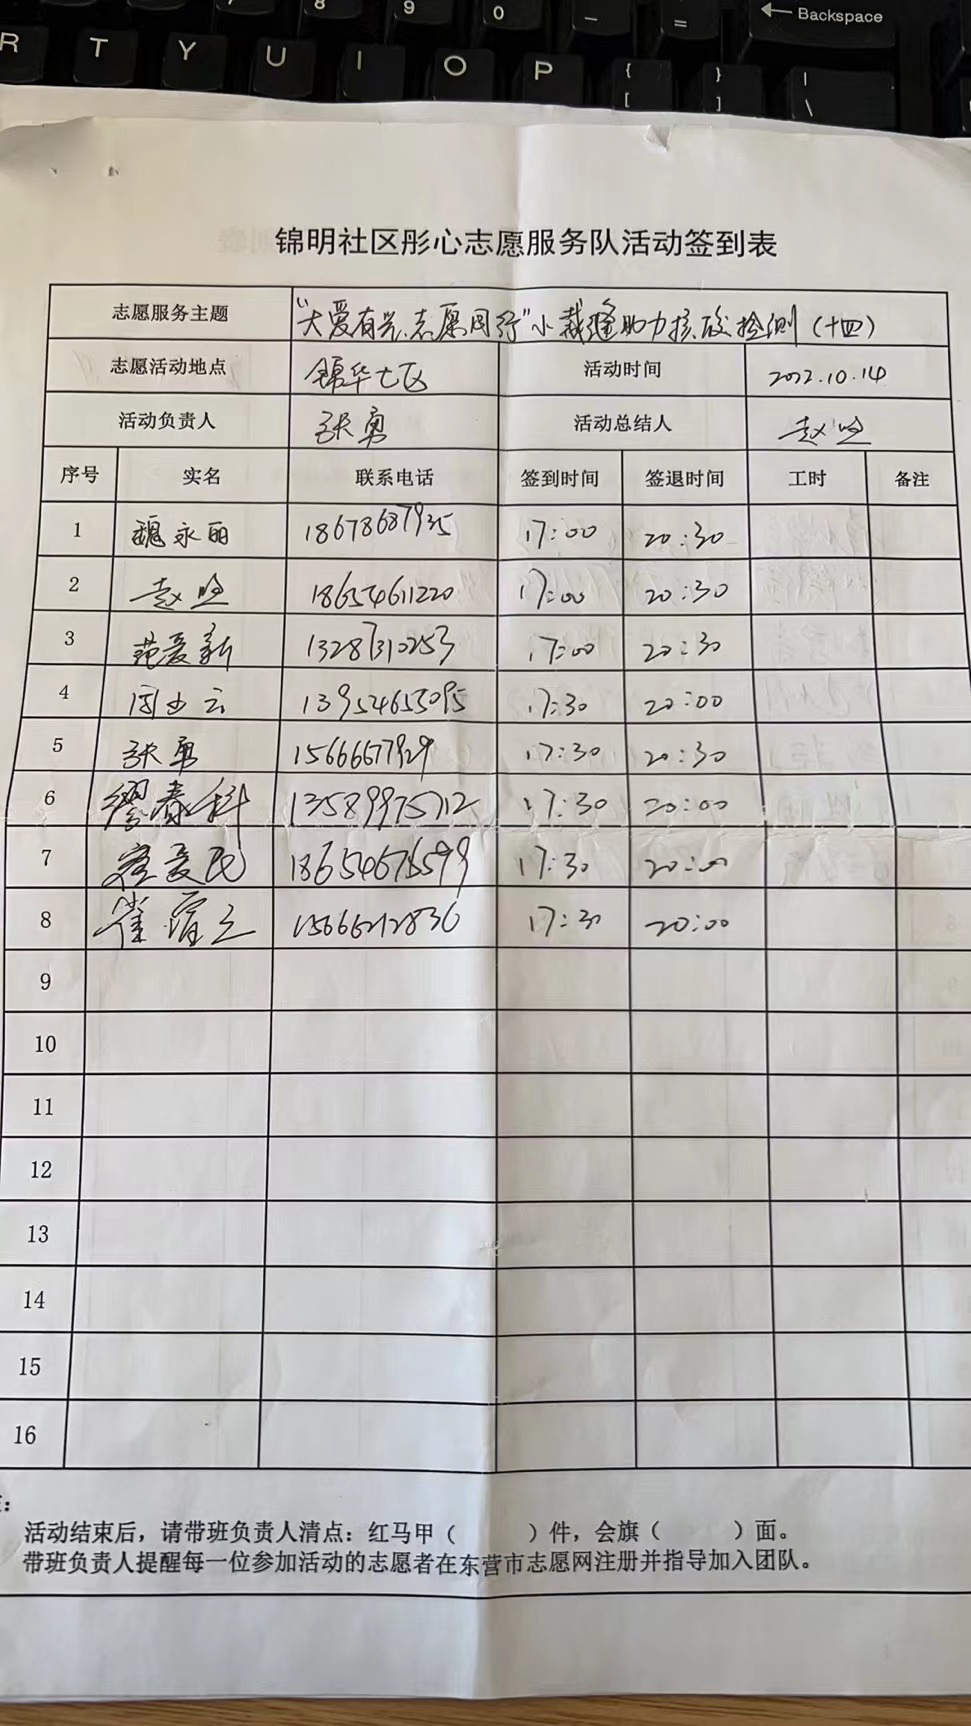 8 9 0 _ = Backspace
R T Y U I O P { [ } ] | \
锦明社区彤心志愿服务队活动签到表
志愿服务主题 “大爱有光,志愿同行”小裁缝助力核酸检测(十四)
志愿活动地点 锦华七区 活动时间 2022.10.14
活动负责人 张勇 活动总结人 赵
序号 实名 联系电话 签到时间 签退时间 工时 备注
1 魏永丽 18678687935 17:00 20:30
2 赵 18654611220 17:00 20:30
3 范爱新 13287310253 17:00 20:30
4 云 13954653095 17:30 20:00
5 张勇 15666677929 17:30 20:30
6 缪泰科 13589975712 17:30 20:00
7 爱民 18654676599 17:30 20:00
8 崔 15666212836 17:30 20:00
9
10
11
12
13
14
15
16
:
活动结束后,请带班负责人清点:红马甲( )件,会旗( )面。
带班负责人提醒每一位参加活动的志愿者在东营市志愿网注册并指导加入团队。